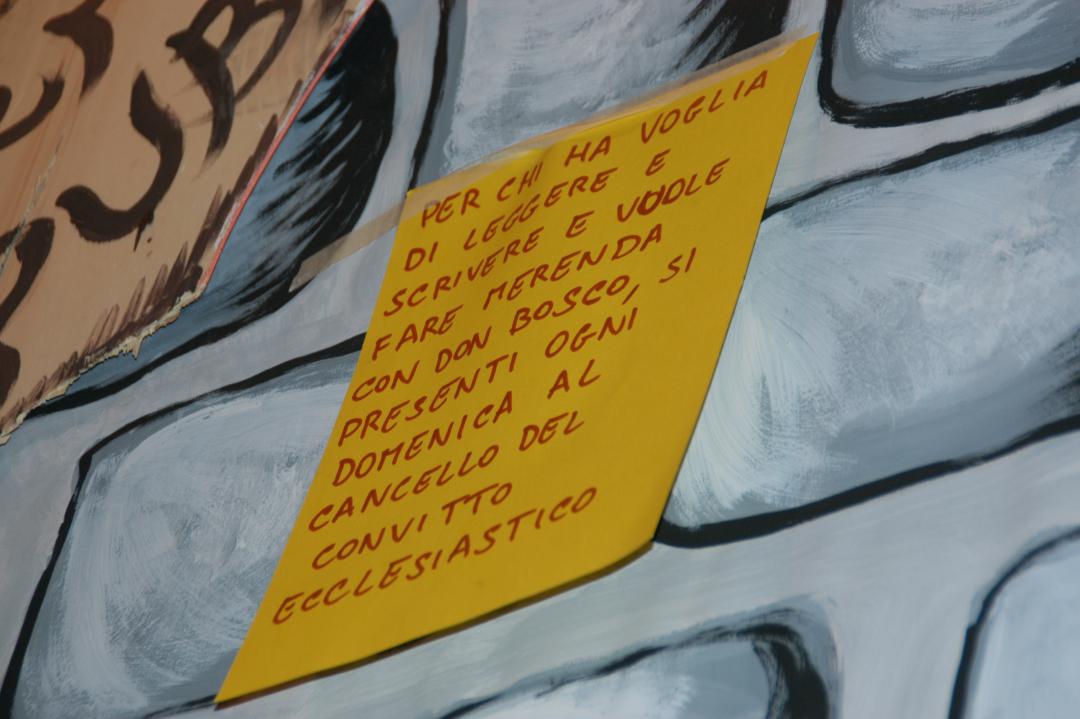 PER CHI HA VOGLIA
DI LEGGERE E
SCRIVERE E VUOLE
FARE MERENDA
CON DON BOSCO, SI
PRESENTI OGNI
DOMENICA AL
CANCELLO DEL
CONVITTO
ECCLESIASTICO